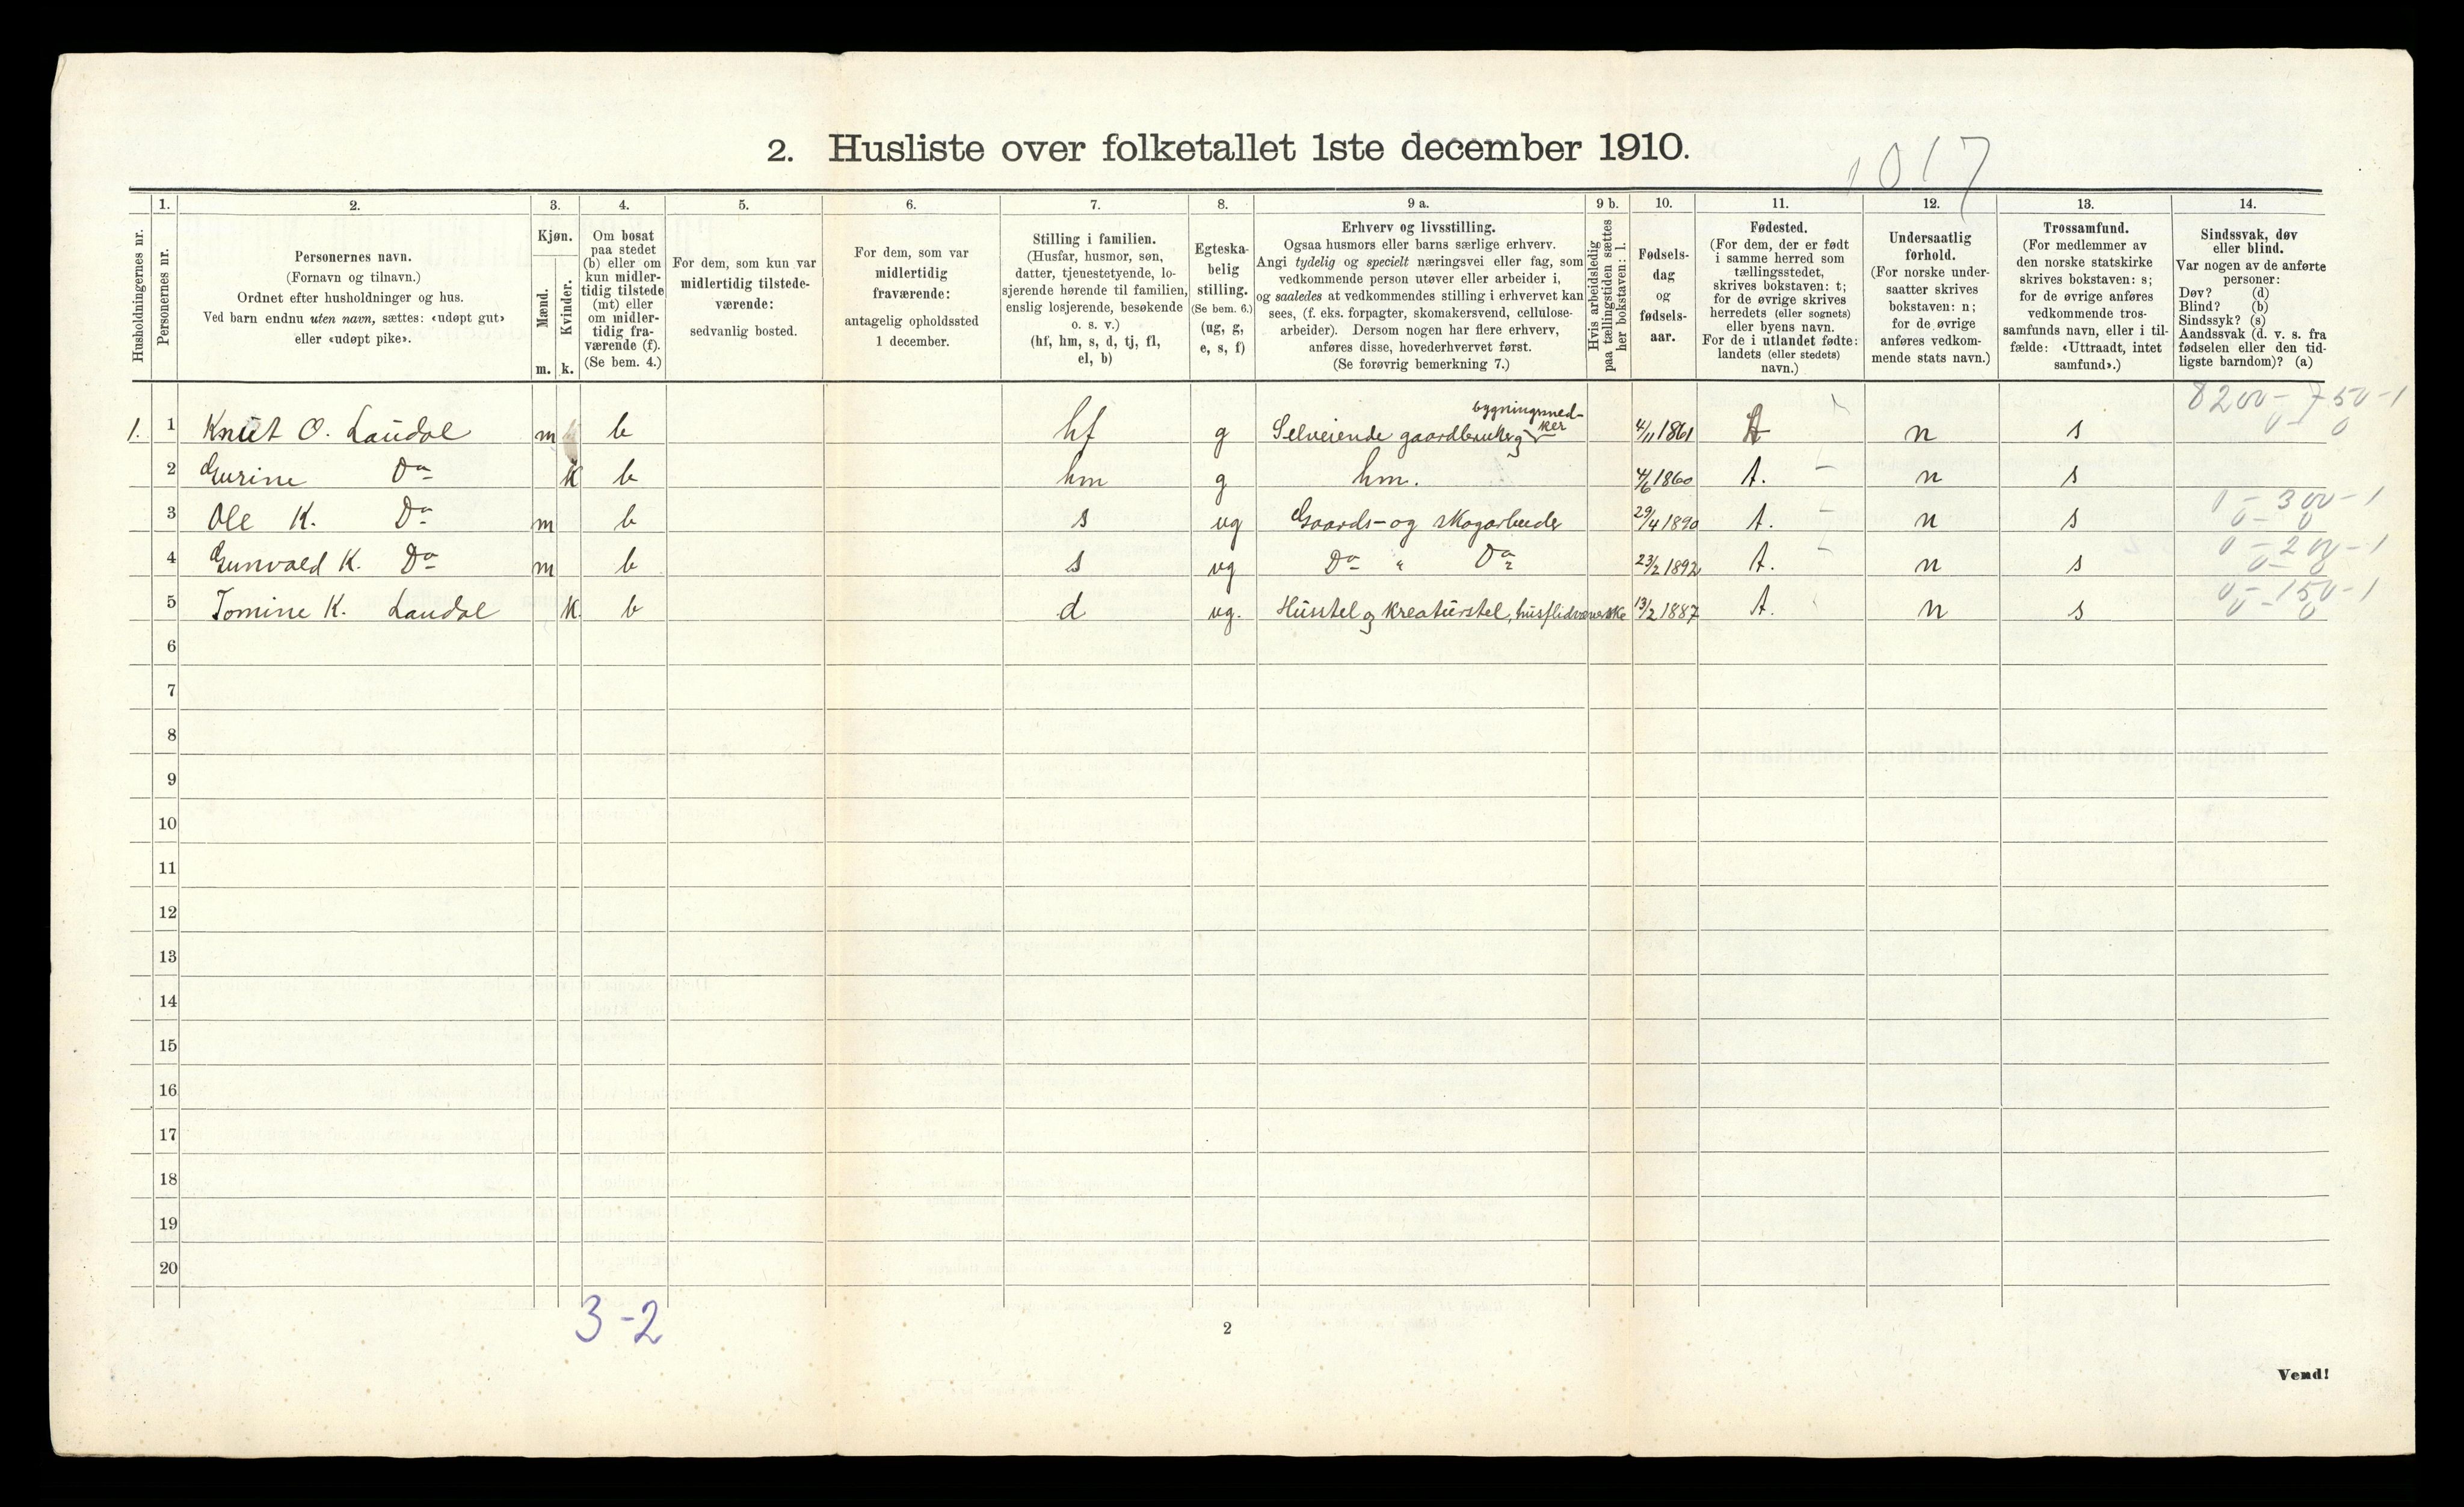 2. Husliste over folketallet 1ste december 1910.
1017
Husholdningernes nr.
1.
Personernes nr.
2.
Personernes navn.
(Fornavn og tilnavn.)
Ordnet efter husholdninger og hus.
Ved barn endnu uten navn, sættes: «udøpt gut»
eller «udøpt pike».
3.
Kjøn.
Mænd.
Kvinder.
m. k.
4.
Om bosat
paa stedet
(b) eller om
kun midler-
tidig tilstede
(mt) eller
om midler-
tidig fra-
værende (f).
(Se bem. 4.)
5.
For dem, som kun var
midlertidig tilstede-
værende:
sedvanlig bosted.
6.
For dem, som var
midlertidig
fraværende:
antagelig opholdssted
1 december.
7.
Stilling i familien.
(Husfar, husmor, søn,
datter, tjenestetyende, lo-
sjerende hørende til familien,
enslig losjerende, besøkende
o. s. v.)
(hf, hm, s, d, tj, fl,
el, b)
8.
Egteska-
belig
stilling.
(Se bem. 6.)
(ug, g,
e, s, f)
9 a.
Erhverv og livsstilling.
Ogsaa husmors eller barns særlige erhverv.
Angi tydelig og specielt næringsvei eller fag, som
vedkommende person utøver eller arbeider i,
og saaledes at vedkommendes stilling i erhvervet kan
sees, (f. eks. forpagter, skomakersvend, cellulose-
arbeider). Dersom nogen har flere erhverv,
anføres disse, hovederhvervet først.
(Se forøvrig bemerkning 7.)
9 b.
Hvis arbeidsledig
paa tællingstiden sættes
her bokstaven: l.
10.
Fødsels-
dag
og
fødsels-
aar.
11.
Fødested.
(For dem, der er født
i samme herred som
tællingsstedet,
skrives bokstaven: t;
for de øvrige skrives
herredets (eller sognets)
eller byens navn.
For de i utlandet fødte:
landets (eller stedets)
navn.)
12.
Undersaatlig
forhold.
(For norske under-
saatter skrives
bokstaven: n;
for de øvrige
anføres vedkom-
mende stats navn.)
13.
Trossamfund.
(For medlemmer av
den norske statskirke
skrives bokstaven: s;
for de øvrige anføres
vedkommende tros-
samfunds navn, eller i til-
fælde: «Uttraadt, intet
samfund».)
14.
Sindssvak, døv
eller blind.
Var nogen av de anførte
personer:
Døv? (d)
Blind? (b)
Sindssyk? (s)
Aandssvak (d. v. s. fra
fødselen eller den tid-
ligste barndom)? (a)
8200-750-1
0- 0
bygningssned-
ker
1. 1 Knut O. Laudal m b hf g Selveiende gaardbruker og 4/11 1861 t n s
2 Gurine Do k b hm g hm. 4/6 1860 t. n s
0-300-1
0- 0
3 Ole K. Do m b s ug Gaards- og skogarbeider 29/4 1890 t. n s
0-200-1
0- 0
4 Gunvald K. Do m b s ug Do " Do 23/2 1892 t. n s
0-150-1
0- 0
5 Tomine K. Laudal k. b d ug. Husstel og kreaturstel, husflidsvæverske 13/2 1887 t. n s
6
7
8
9
10
11
12
13
14
15
16
17
18
19
20
3-2
2
Vend!